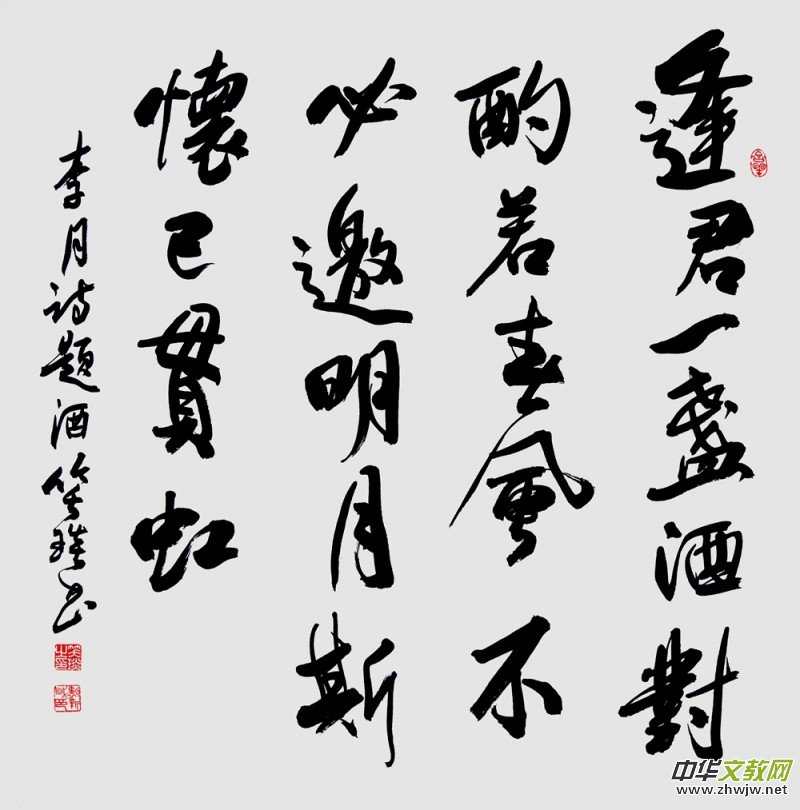 逢君一盏酒對
酌若春風不
必邀明月斯
懷已貫虹
李月诗題酒 笑琰书
中华文教网
www.zhwjw.net